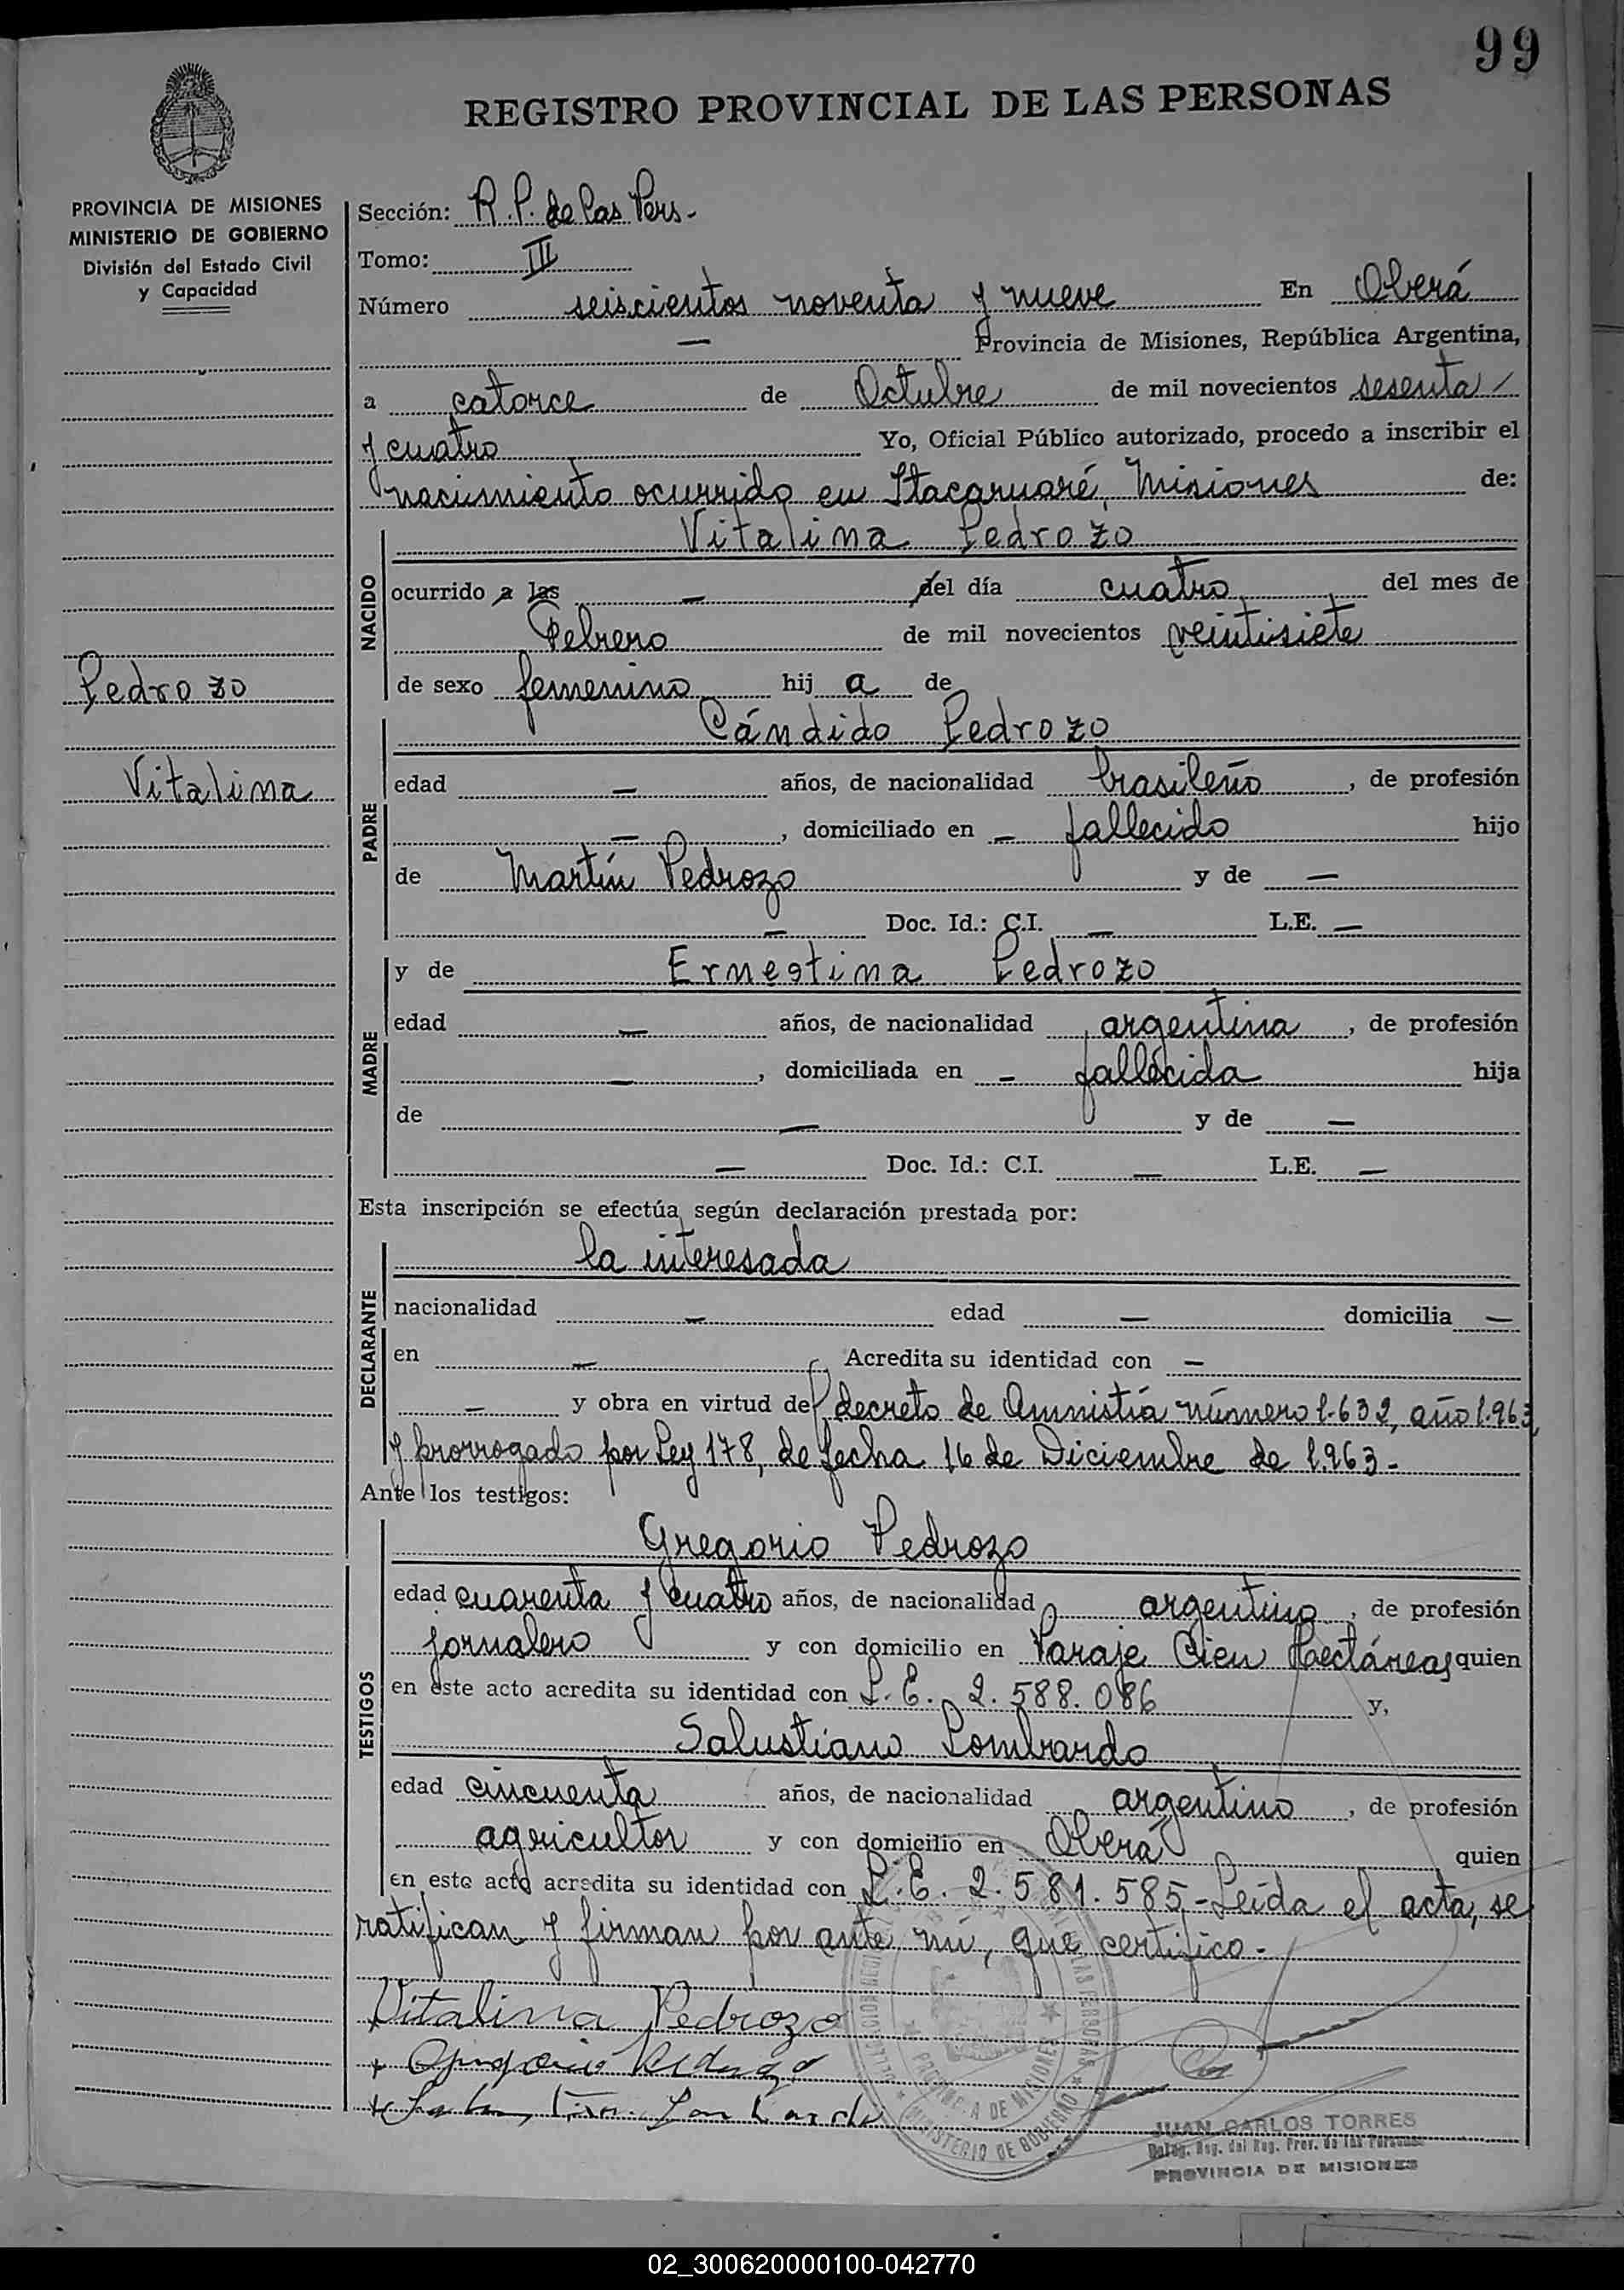 99
REGISTRO PROVINCIAL DE LAS PERSONAS
PROVINCIA DE MISIONES
MINISTERIO DE GOBIERNO
División del Estado Civil
y Capacidad
Sección: R.P. de las Pers.-
Tomo: III
Número seiscientos noventa y nueve En Oberá
— Provincia de Misiones, República Argentina,
a catorce de Octubre de mil novecientos sesenta
y cuatro Yo, Oficial Público autorizado, procedo a inscribir el
nacimiento ocurrido en Itacaruaré, Misiones de:
NACIDO
Vitalina Pedrozo
ocurrido a las — del día cuatro del mes de
Febrero de mil novecientos veintisiete
de sexo femenino hij a de
Pedrozo
Vitalina
PADRE
Cándido Pedrozo
edad — años, de nacionalidad brasileño, de profesión
—, domiciliado en — fallecido hijo
de Martín Pedrozo y de —
— Doc. Id.: C.I. — L.E. —
MADRE
y de Ernestina Pedrozo
edad — años, de nacionalidad argentina, de profesión
—, domiciliada en — fallecida hija
de — y de —
— Doc. Id.: C.I. — L.E. —
Esta inscripción se efectúa según declaración prestada por:
DECLARANTE
la interesada
nacionalidad — edad — domicilia —
en — Acredita su identidad con —
— y obra en virtud del decreto de Amnistía número 1.632, año 1.963,
y prorrogado por Ley 178, de fecha 16 de Diciembre de 1.963.-
Ante los testigos:
TESTIGOS
Gregorio Pedrozo
edad cuarenta y cuatro años, de nacionalidad argentino, de profesión
jornalero y con domicilio en Paraje Cien Hectáreas quien
en este acto acredita su identidad con L.E. 2.588.086 y,
Salustiano Lombardo
edad cincuenta años, de nacionalidad argentino, de profesión
agricultor y con domicilio en Oberá quien
en este acto acredita su identidad con L.E. 2.581.585.- Leída el acta, se
ratifican y firman por ante mí, que certifico.-
Vitalina Pedrozo
Gregorio Pedrozo
PROVINCIA DE MISIONES
MINISTERIO DE GOBIERNO
JUAN CARLOS TORRES
PROVINCIA DE MISIONES
02_300620000100-042770